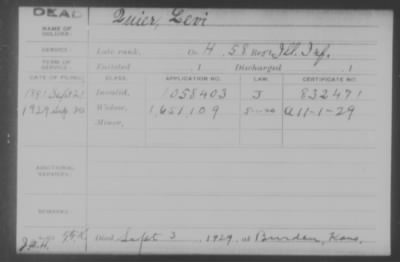 DEAD
Quier, Levi
NAME OF
SOLDIER:
SERVICE:
Late rank, Co. H, 58 Reg't Ill. Inf.
TERM OF
SERVICE:
Enlisted , 1 Discharged , 1
DATE OF FILING. CLASS. APPLICATION NO. LAW. CERTIFICATE NO.
1891 Sept 21 Invalid, 1058403 J 832471
1929 Sep 20 Widow, 1,651,109 A 11-1-29
Minor,
ADDITIONAL
SERVICES:
REMARKS:
Died Sept 3, 1929, at Burden, Kans.